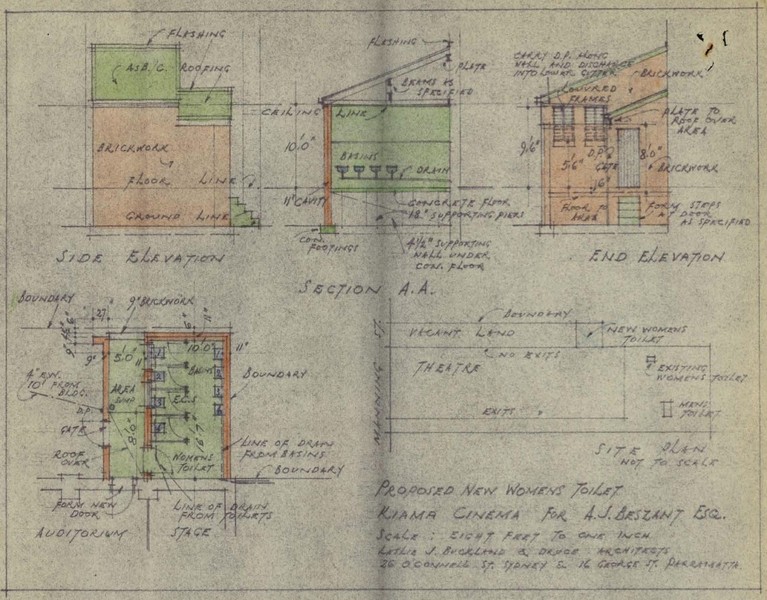 FLASHING
ASB. C. ROOFING
BRICKWORK
FLOOR LINE
GROUND LINE
SIDE ELEVATION
FLASHING
PLATE
BEAMS AS
SPECIFIED
CEILING LINE
10'.0"
BASINS
DRAIN
11" CAVITY
CONCRETE FLOOR
18" SUPPORTING PIERS
CON.
FOOTINGS
4½" SUPPORTING
WALL UNDER
CON. FLOOR
SECTION A.A.
CARRY D.P. ALONG
WALL AND DISCHARGE
INTO LOWER GUTTER
BRICKWORK
LOUVRED
FRAMES
PLATE TO
ROOF OVER
AREA
9'.6"
5'.6"
D.P.
GATE
8'.0"
BRICKWORK
FLOOR TO
AREA
FORM STEPS
AT DOOR
AS SPECIFIED
END ELEVATION
BOUNDARY
9" BRICKWORK
9"
5'.0"
11"
10'.0"
11"
BASINS
AREA
E.C.S
8'.0"
16'.7"
WOMENS
TOILET
BOUNDARY
10' FROM
BLDG.
D.P.
GATE
ROOF
OVER
LINE OF DRAIN
FROM BASINS
BOUNDARY
FORM NEW
DOOR
LINE OF DRAIN
FROM TOILETS
AUDITORIUM
STAGE
MANNING ST.
BOUNDARY
VACANT LAND
NEW WOMENS
TOILET
NO EXITS
THEATRE
EXISTING
WOMENS TOILET
MENS
TOILET
EXITS
SITE PLAN
NOT TO SCALE
PROPOSED NEW WOMENS TOILET
KIAMA CINEMA FOR A.J. BESZANT ESQ.
SCALE: EIGHT FEET TO ONE INCH
LESLIE J. BUCKLAND & DRUCE ARCHITECTS
26 O'CONNELL ST. SYDNEY & 16 GEORGE ST. PARRAMATTA